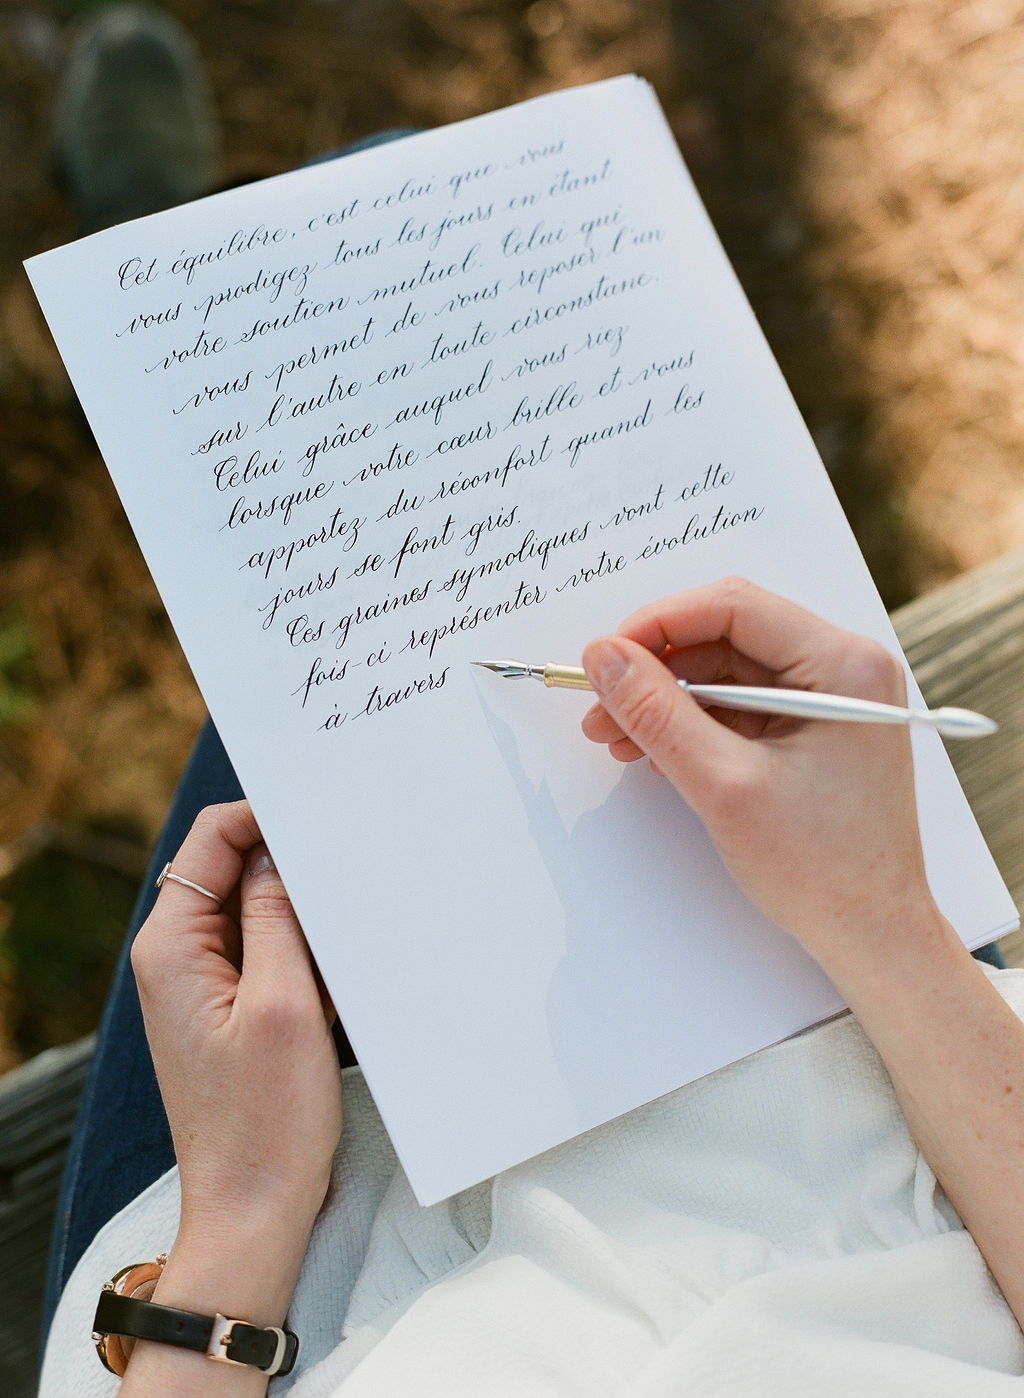 Cet équilibre, c'est celui que vous
vous prodigez tous les jours en étant
votre soutien mutuel. Celui qui
vous permet de vous reposer l'un
sur l'autre en toute circonstane.
Celui grâce auquel vous riez
lorsque votre cœur brille et vous
apportez du réconfort quand les
jours se font gris.
Ces graines symoliques vont cette
fois-ci représenter votre évolution
à travers